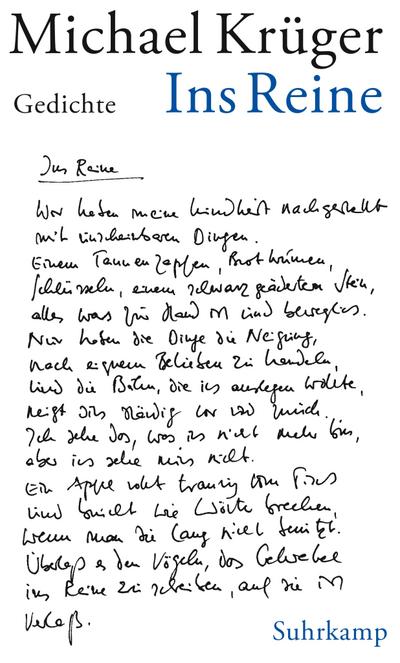 Michael Krüger
Gedichte Ins Reine
Ins Reine
Wir haben meine Kindheit nachgestellt
mit unscheinbaren Dingen.
Einem Tannenzapfen, Brotkrümen,
Schlüsseln, einem schwarz geäderten Stein,
alles was zur Hand ist und beweglich.
Nun haben die Dinge die Neigung,
nach eignem Belieben zu handeln,
und die Bühne, die ich auslegen wollte,
neigt sich ständig vor und zurück.
Ich sehe das, was ich nicht mehr bin,
aber ich sehe mich nicht.
Ein Apfel rollt traurig vom Tisch
und bricht wie Worte brechen,
wenn man sie lang nicht benützt.
Überlaß es den Vögeln, das Gekrakel
ins Reine zu schreiben, auf sie ist
Verlaß.
Suhrkamp